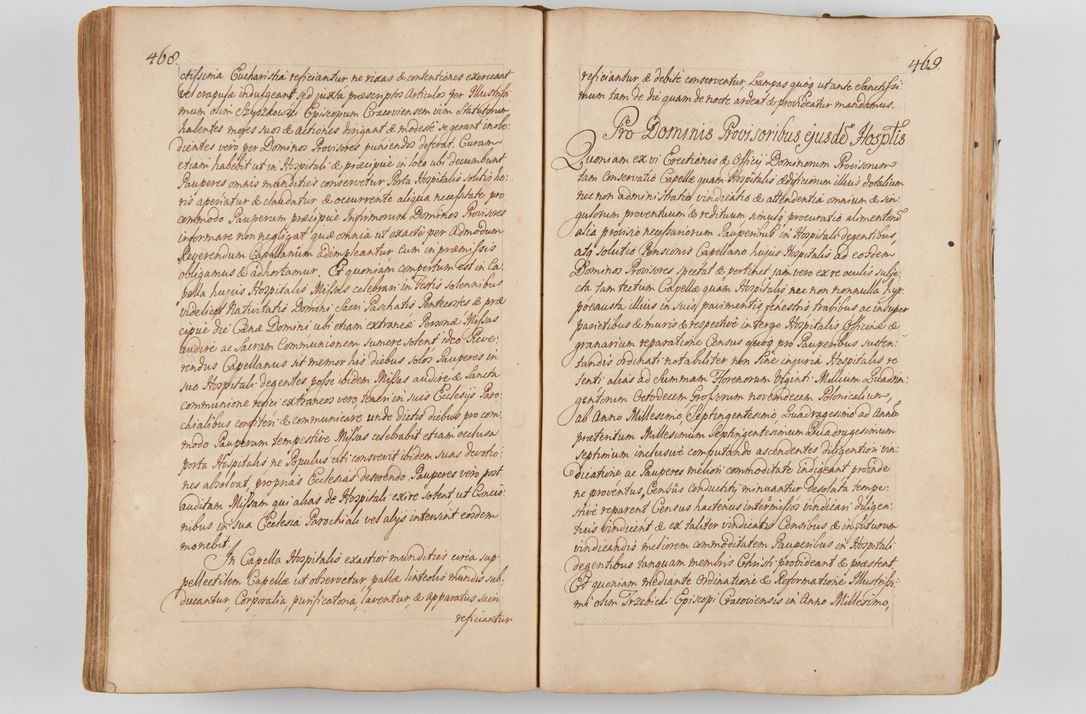 468
ctissima Eucharistia reficiantur ne rixas & contentiones exerceant
vel crapulæ indulgeant sed juxta præscriptos Articulos per Illustrissi
mum olim Szyszkowski Episcopum Cracoviensem vim Statutorum
habentes mores suos & actiones dirigant & modeste se gerant inobe:
dientes vero per Dominos Provisores puniendos deferat. Curam
etiam habebit ut in Hospitali & præcipue in loco ubi decumbunt
Pauperes omnis mundities conservetur Porta Hospitalis solitis ho:
ris aperiatur & claudatur & occurrente aliqua necessitate, pro
commodo Pauperum præcipue Infirmorum Dominos Provisores
informare non negligat quæ omnia ut exacte per Admodum
Reverendum Capellanum adimpleantur Eum in præmissis
obligamus & adhortamur. Et quoniam compertum est in Ca:
pella hujus Hospitalis Missas celebrari in Festis solennibus
videlicet Nativitatis Domini Sacri Paschatis Pentecostes & præ
cipue die Cænæ Domini ubi etiam extraneæ Personæ Missas
audire ac Sacram Communionem sumere solent ideo Reve:
rendus Capellanus sit memor his diebus solos Pauperes in
suo Hospitali degentes posse ibidem Missas audire & Sancta
communione refici extraneos vero teneri in suis Ecclesijs Paro:
chialibus confiteri & communicare unde dictis diebus pro com:
modo Pauperum tempestive Missas celebrabit etiam occlusa
porta Hospitalis ne Populus uti consvevit ibidem suas devotio:
nes absolvat, proprias Ecclesias deserendo Pauperes vero post
auditam Missam qui alias de Hospitali exire solent ut Concio:
nibus in sua Ecclesia Parochiali vel alijs intersint eosdem
monebit.
In Capella Hospitalis exactior mundities circa sup:
pellectilem Capellæ ut observetur, pallæ linteolis mundis sub:
ducantur, Corporalia, purificatoria, laventur, & Apparatus sacri
reficiantur
469
reficiantur & debite conserventur, Lampas quoq ut ante Sanctissi:
mum tam de die quam de nocte ardeat & provideatur mandamus.
Pro Dominis Provisoribus ejusd: Hosptlis
Quoniam ex vi Erectionis & Officij Dominorum Provisorum
tam Conservatio Capellæ quam Hospitalis ædificiorum illius dotalium
nec non administratio vindicatio & attendentia omnium & sin:
gulorum proventuum & redituum, simulq procuratio alimentorū
alia provisio necessariorum Pauperibus in Hospitali degentibus,
atq solutio Pensionis Capellano hujus Hospitalis ad eosdem
Dominos Provisores spectat & pertinet jam vero ex re oculis subje:
cta tam tectum Capellæ quam Hospitalis nec non nonnulla hyp:
pocausta illius in suis pavimentis fenestris trabibus ac insuper
parietibus & muris & respective in tergo Hospitalis Officinæ &
granarium reparatione Census quoq pro Pauperibus susten:
tandis ordinati notabiliter non sine injuria Hospitalis re
tenti alias ad Summam Florenorum Viginti Millium Quadrin:
gentorum Octodecem Grossorum novemdecem Polonicalium,
ab Anno Millesimo, Septingentesimo Quadragesimo ad Annū
præteritum Millesimum Septingentesimum Quadragesimum
septimum inclusive computando ascendentes diligentiori vin:
dicatione ac Pauperes meliori commoditate indigeant proinde
ne proventus, Census conductitij minuantur desolata tempe:
stive reparent Census hactenus intermissos vindicari diligen:
tius vindicent & ex taliter vindicatis Censibus & in futurum
vindicandis meliorem commoditatem Pauperibus in Hospitali
degentibus tanquam membris Christi provideant & præstent.
Et quoniam mediante Ordinatione & Reformatione Illustrissi:
mi olim Trzebicki Episcopi Cracoviensis in Anno Millesimo,